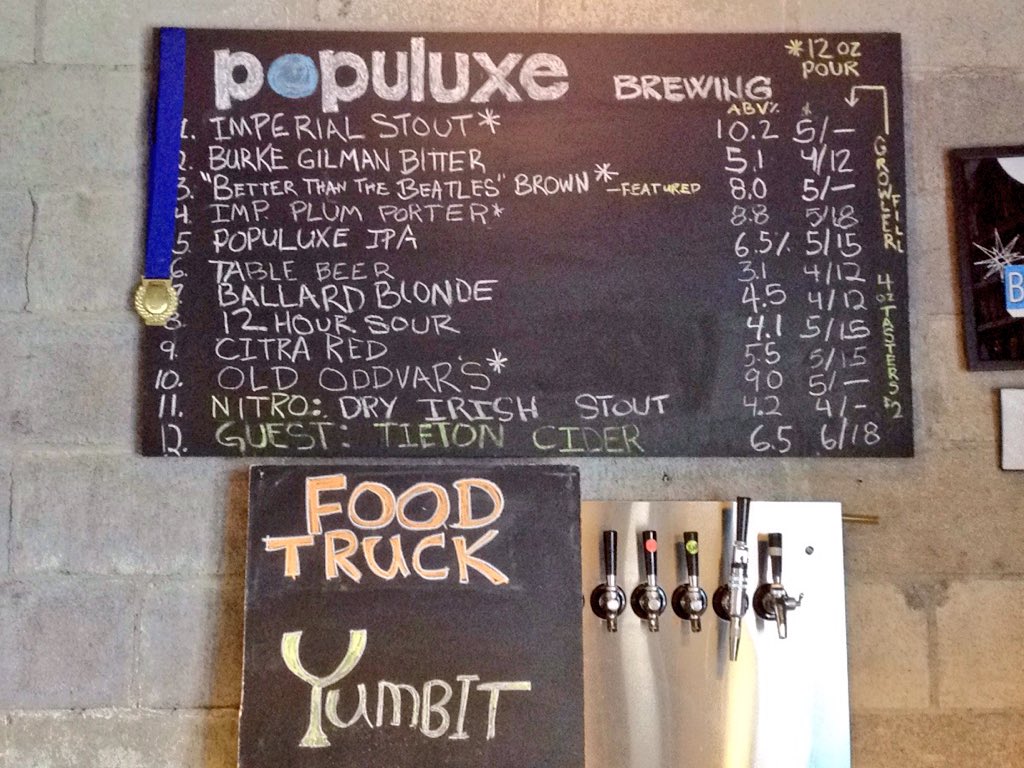 populuxe BREWING
*12 OZ
POUR
ABV% $
1. IMPERIAL STOUT* 10.2 5/—
2. BURKE GILMAN BITTER 5.1 4/12
3. "BETTER THAN THE BEATLES" BROWN* —FEATURED 8.0 5/—
4. IMP. PLUM PORTER* 8.8 5/18
5. POPULUXE IPA 6.5% 5/15
6. TABLE BEER 3.1 4/12
7. BALLARD BLONDE 4.5 4/12
8. 12 HOUR SOUR 4.1 5/15
9. CITRA RED 5.5 5/15
10. OLD ODDVARS* 9.0 5/—
11. NITRO: DRY IRISH STOUT 4.2 4/-
12. GUEST: TIETON CIDER 6.5 6/18
GROWLER
FILL
4 OZ TASTERS $2
B
FOOD
TRUCK
YUMBIT